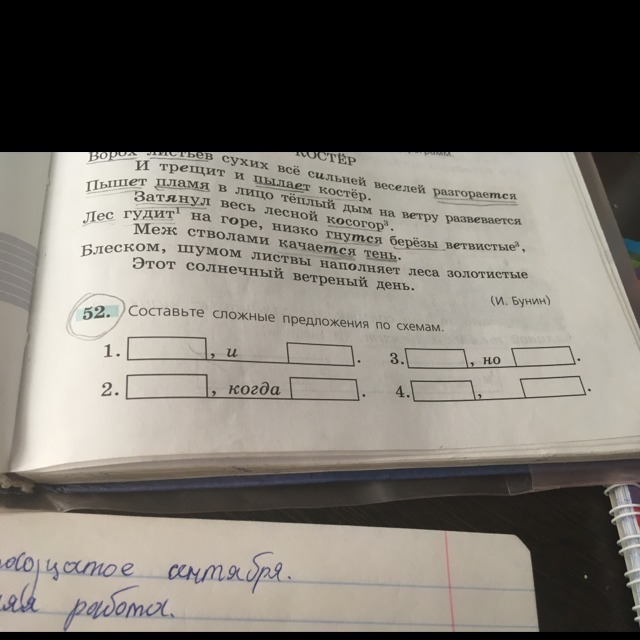 КОСТЁР
Ворох листьев сухих всё сильней веселей разгорается
И трещит и пылает костёр.
Пышет пламя в лицо тёплый дым на ветру развевается
Затянул весь лесной косогор³.
Лес гудит¹ на горе, низко гнутся берёзы ветвистые³,
Меж стволами качается тень.
Блеском, шумом листвы наполняет леса золотистые
Этот солнечный ветреный день.
(И. Бунин)
52. Составьте сложные предложения по схемам.
1. , и . 3. , но .
2. , когда . 4. , .
сентября.
работа.